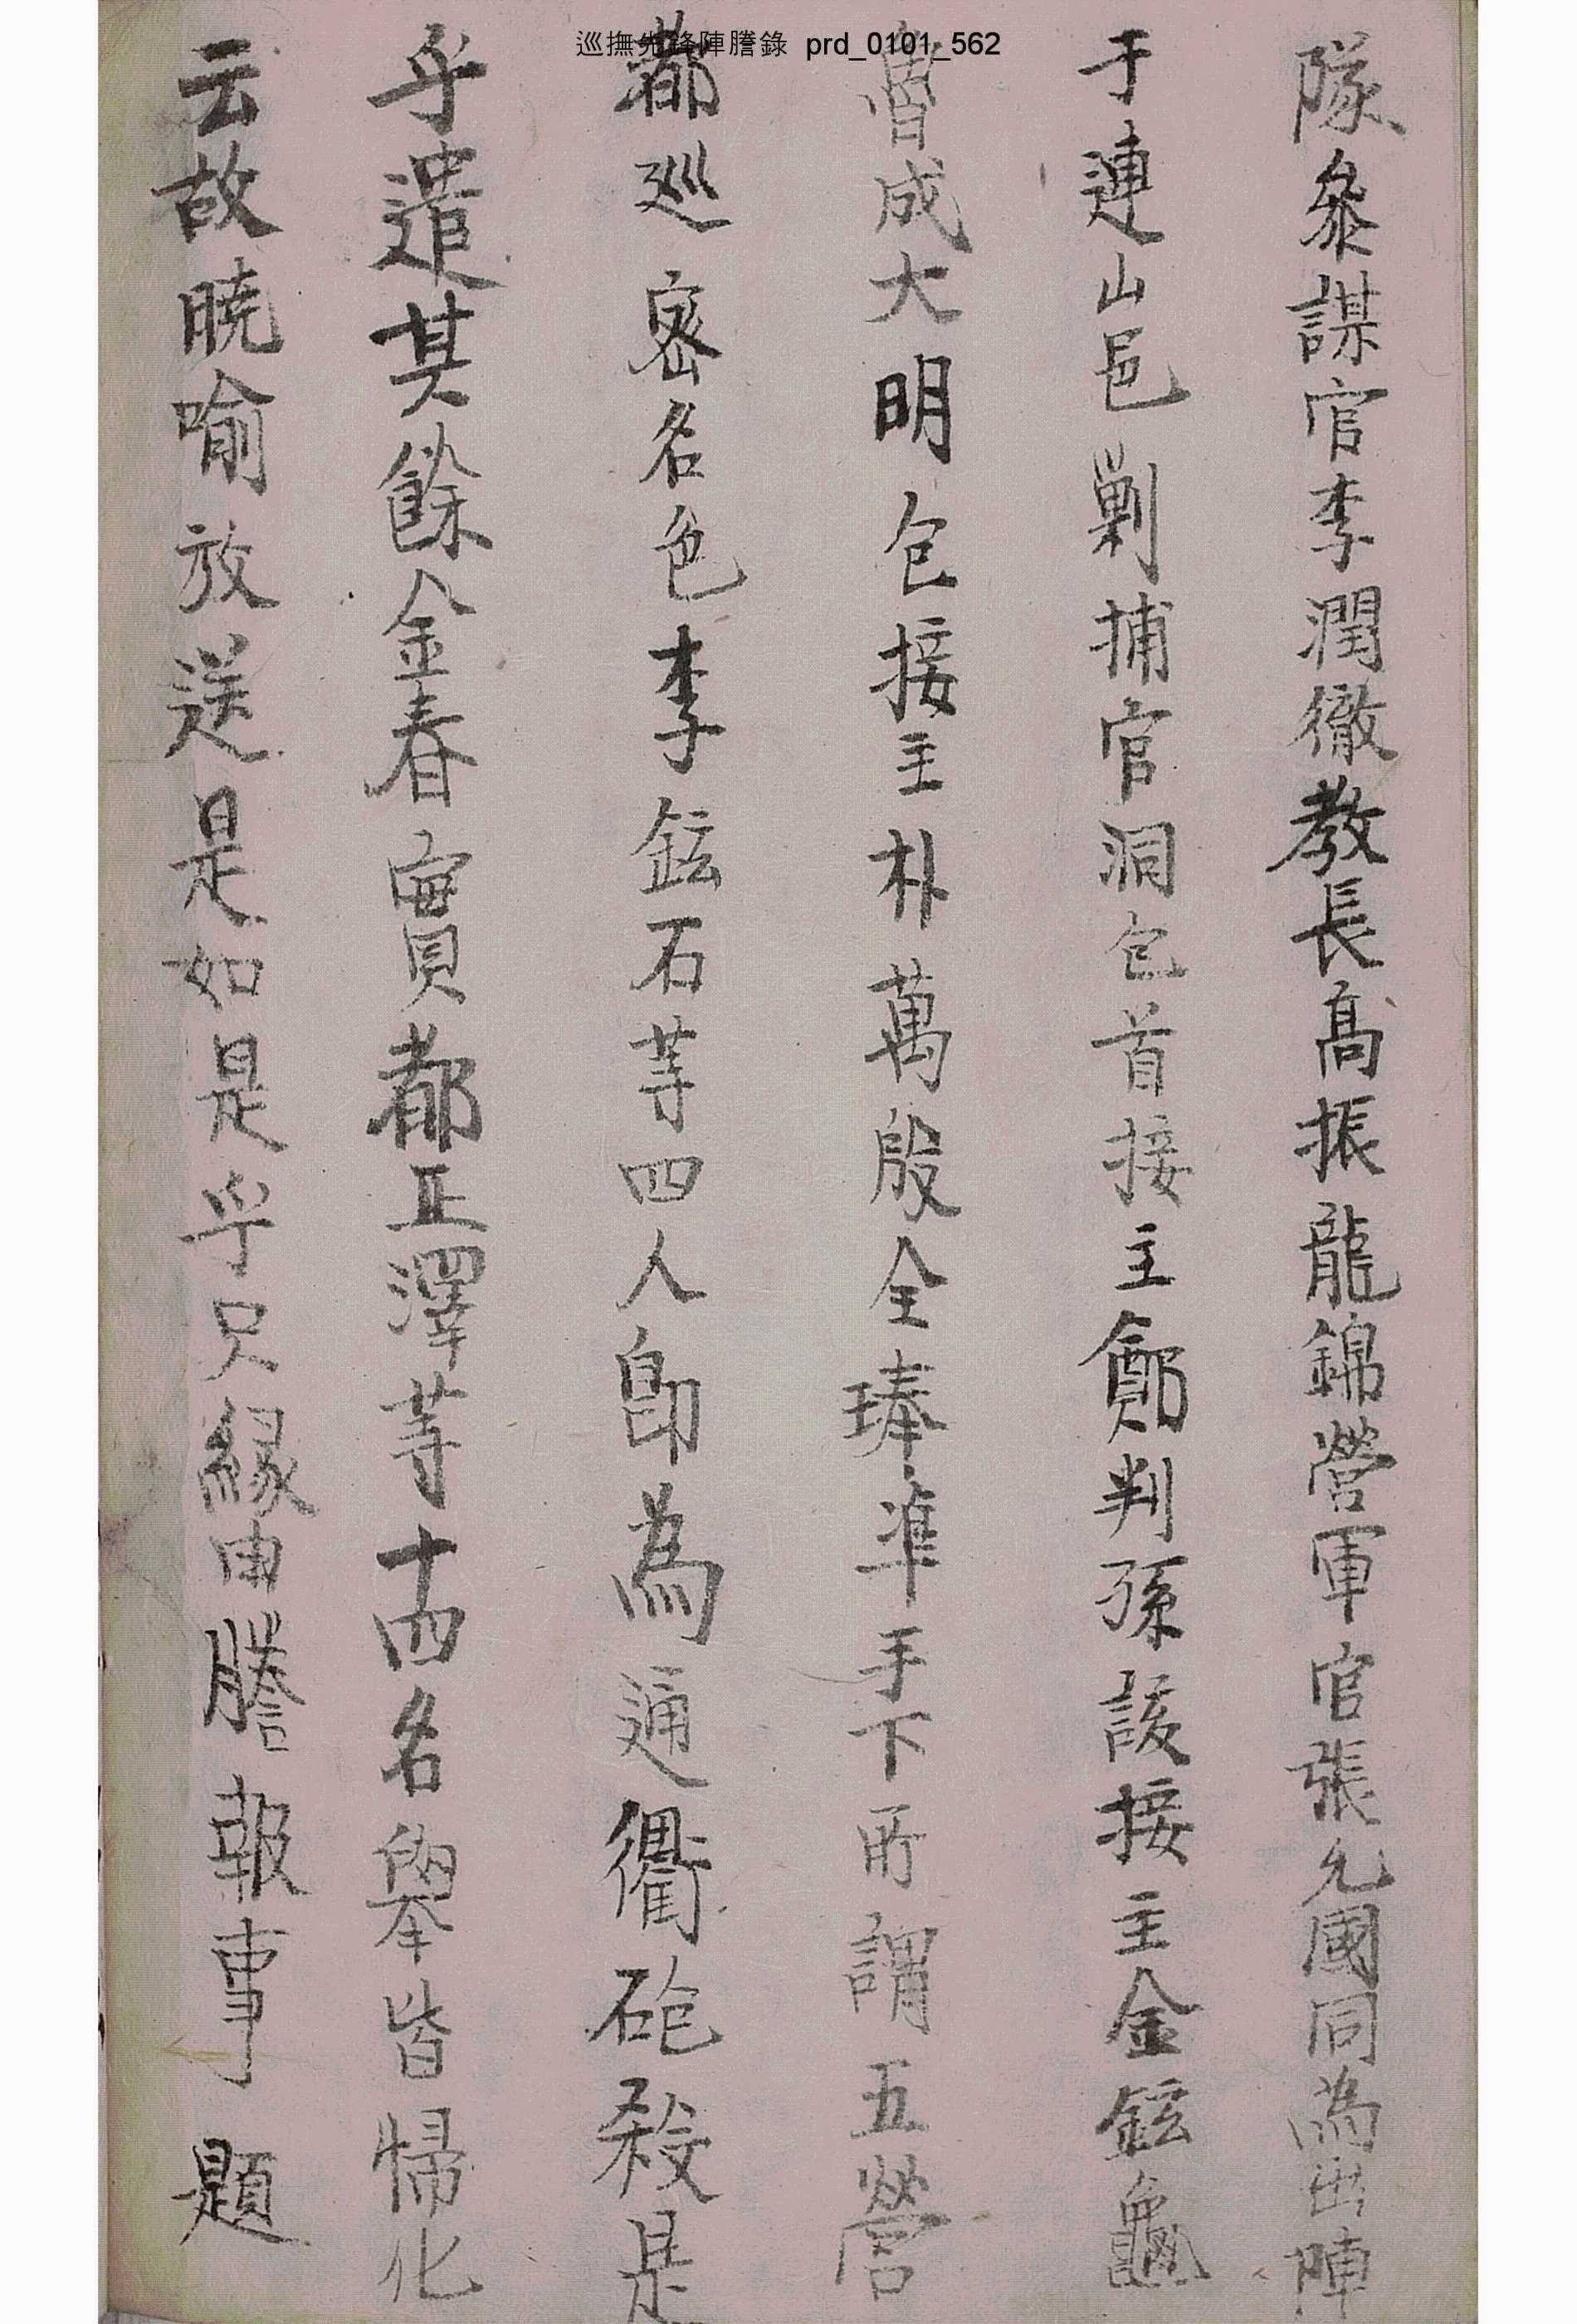 巡撫先鋒陣謄錄 prd_0101_562
隊叅謀官李潤徹教長高振龍錦營軍官張允國同為出陣
于連山邑剿捕官洞包首接主鄭判孫該接主金鉉龜
魯成大明包接主朴萬殷全琫準手下所謂五營
都巡察名色李鉉石等四人卽為通衢砲殺是
乎遣其餘金春實都正澤等十四名擧皆歸化
云故曉喻放送是如是乎只緣由謄報事題